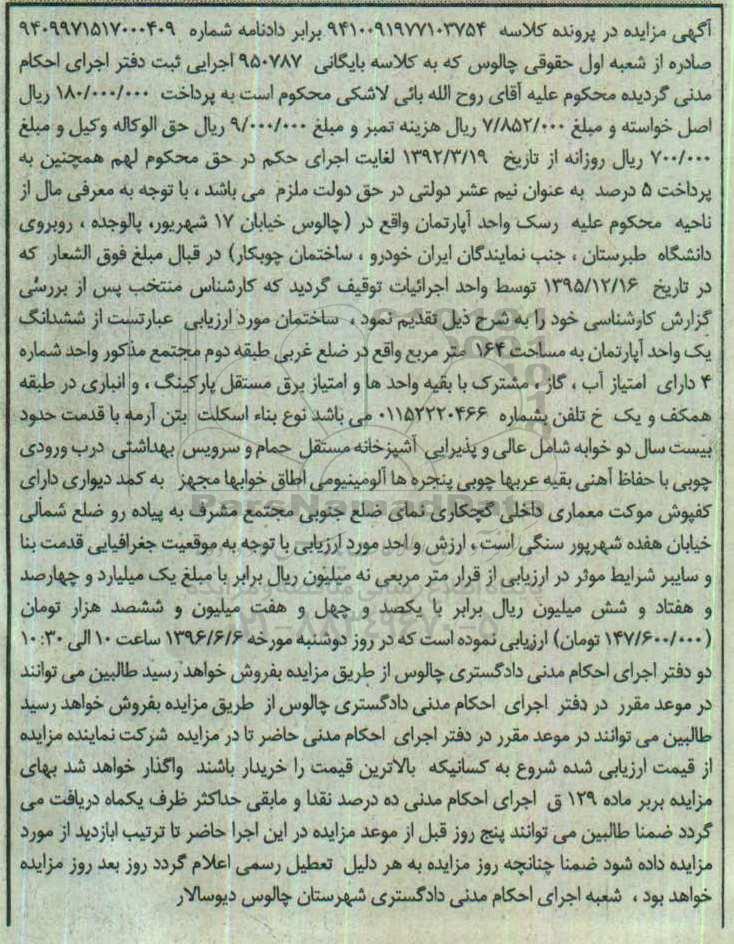 آگهی مزایده در پرونده کلاسه ۹۴۱۰۰۹۱۹۷۷۱۰۳۷۵۴ برابر دادنامه شماره ۹۴۰۹۹۷۱۵۱۷۰۰۰۴۰۹
صادره از شعبه اول حقوقی چالوس که به کلاسه بایگانی ۹۵۰۷۸۷ اجرایی ثبت دفتر اجرای احکام
مدنی گردیده محکوم علیه آقای روح الله بائی لاشکی محکوم است به پرداخت ۱۸۰/۰۰۰/۰۰۰ ریال
اصل خواسته و مبلغ ۷/۸۵۲/۰۰۰ ریال هزینه تمبر و مبلغ ۹/۰۰۰/۰۰۰ ریال حق الوکاله وکیل و مبلغ
۷۰۰/۰۰۰ ریال روزانه از تاریخ ۱۳۹۲/۳/۱۹ لغایت اجرای حکم در حق محکوم لهم همچنین به
پرداخت ۵ درصد به عنوان نیم عشر دولتی در حق دولت ملزم می باشد ، با توجه به معرفی مال از
ناحیه محکوم علیه رسک واحد آپارتمان واقع در (چالوس خیابان ۱۷ شهریور، پالوجده ، روبروی
دانشگاه طبرستان ، جنب نمایندگان ایران خودرو ، ساختمان چوبکار) در قبال مبلغ فوق الشعار که
در تاریخ ۱۳۹۵/۱۲/۱۶ توسط واحد اجرائیات توقیف گردید که کارشناس منتخب پس از بررسی
گزارش کارشناسی خود را به شرح ذیل تقدیم نمود ، ساختمان مورد ارزیابی عبارتست از ششدانگ
یک واحد آپارتمان به مساحت ۱۶۴ متر مربع واقع در ضلع غربی طبقه دوم مجتمع مذکور واحد شماره
۴ دارای امتیاز آب ، گاز ، مشترک با بقیه واحد ها و امتیاز برق مستقل پارکینگ ، و انباری در طبقه
همکف و یک خ تلفن بشماره ۰۱۱۵۲۲۲۰۴۶۶ می باشد نوع بناء اسکلت بتن آرمه با قدمت حدود
بیست سال دو خوابه شامل عالی و پذیرایی آشپزخانه مستقل حمام و سرویس بهداشتی درب ورودی
چوبی با حفاظ آهنی بقیه عربها چوبی پنجره ها آلومینیومی اطاق خوابها مجهز به کمد دیواری دارای
کفپوش موکت معماری داخلی گچکاری نمای ضلع جنوبی مجتمع مشرف به پیاده رو ضلع شمالی
خیابان هفده شهریور سنگی است ، ارزش واحد مورد ارزیابی با توجه به موقعیت جغرافیایی قدمت بنا
و سایر شرایط موثر در ارزیابی از قرار متر مربعی نه میلیون ریال برابر با مبلغ یک میلیارد و چهارصد
و هفتاد و شش میلیون ریال برابر با یکصد و چهل و هفت میلیون و ششصد هزار تومان
(۱۴۷/۶۰۰/۰۰۰ تومان) ارزیابی نموده است که در روز دوشنبه مورخه ۱۳۹۶/۶/۶ ساعت ۱۰ الی ۱۰:۳۰
دو دفتر اجرای احکام مدنی دادگستری چالوس از طریق مزایده بفروش خواهد رسید طالبین می توانند
در موعد مقرر در دفتر اجرای احکام مدنی دادگستری چالوس از طریق مزایده بفروش خواهد رسید
طالبین می توانند در موعد مقرر در دفتر اجرای احکام مدنی حاضر تا در مزایده شرکت نماینده مزایده
از قیمت ارزیابی شده شروع به کسانیکه بالاترین قیمت را خریدار باشند واگذار خواهد شد بهای
مزایده بربر ماده ۱۲۹ ق اجرای احکام مدنی ده درصد نقدا و مابقی حداکثر ظرف یکماه دریافت می
گردد ضمنا طالبین می توانند پنج روز قبل از موعد مزایده در این اجرا حاضر تا ترتیب ابازدید از مورد
مزایده داده شود ضمنا چنانچه روز مزایده به هر دلیل تعطیل رسمی اعلام گردد روز بعد روز مزایده
خواهد بود ، شعبه اجرای احکام مدنی دادگستری شهرستان چالوس دیوسالار